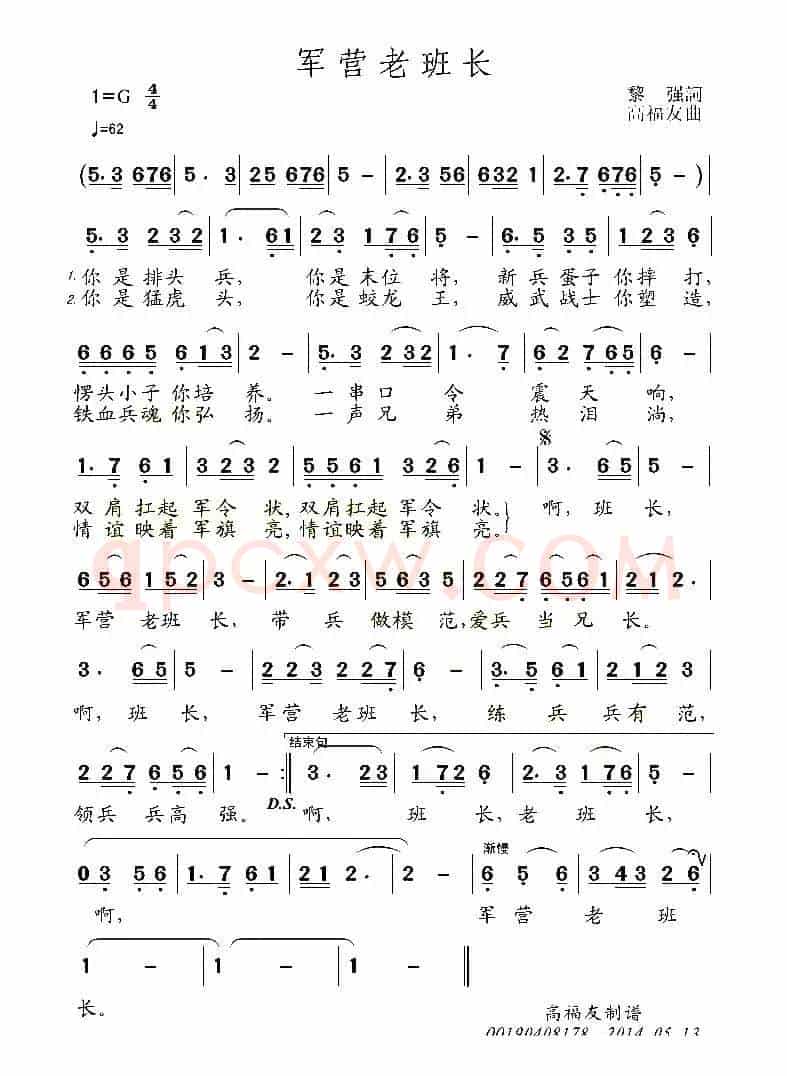 军营老班长
1=G 4/4
黎 强詞
高福友曲
♩=62
(5.3 676 | 5 . 3 | 25 676 | 5 - | 2.3 56 | 632 1 | 2.7 676 | 5 - )
5. 3 232 | 1 . 61 | 23 176 | 5 - | 6. 5 35 | 123 6 |
1.你是排头 兵, 你是末位 将, 新兵蛋子你摔 打,
2.你是猛虎 头, 你是蛟龙 王, 威武战士你塑 造,
6665 613 | 2 - | 5.3 232 | 1 . 7 | 62 765 | 6 - |
愣头小子 你培 养。 一串口 令 震天 响,
铁血兵魂 你弘 扬。 一声兄 弟 热泪 淌,
1.7 61 | 323 2 | 5561 326 | 1 - | 3 . 65 | 5 - |
双肩扛起 军令 状,双肩扛起 军令 状。 啊,班 长,
情谊映着 军旗 亮,情谊映着 军旗 亮。
656 152 | 3 - | 2.1 23 | 563 5 | 227 6561 | 212 . |
军营 老班 长, 带 兵 做模 范,爱兵 当兄 长。
3 . 65 | 5 - | 223 227 | 6 - | 3.5 61 | 212 3 |
啊, 班 长, 军营 老班 长, 练 兵 兵有 范,
结束句
227 656 | 1 - :‖ 3 . 23 | 172 6 | 2.3 176 | 5 - |
领兵 兵高 强。 D.S. 啊, 班 长,老 班 长,
渐慢
03 56 | 1.7 61 | 212 . | 2 - | 6 5 6 | 343 26 |
啊, 军 营 老 班
1 - | 1 - | 1 - | 1 - ‖
长。
高福友制谱
00190408178 2014.05.13
qpcxw.com